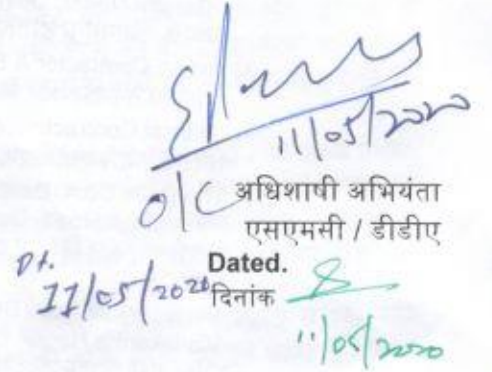 11/05/2020
O/C अधिशाषी अभियंता
एसएमसी / डीडीए
Dated.
Dt. 11/05/2020 दिनांक
11/05/2020